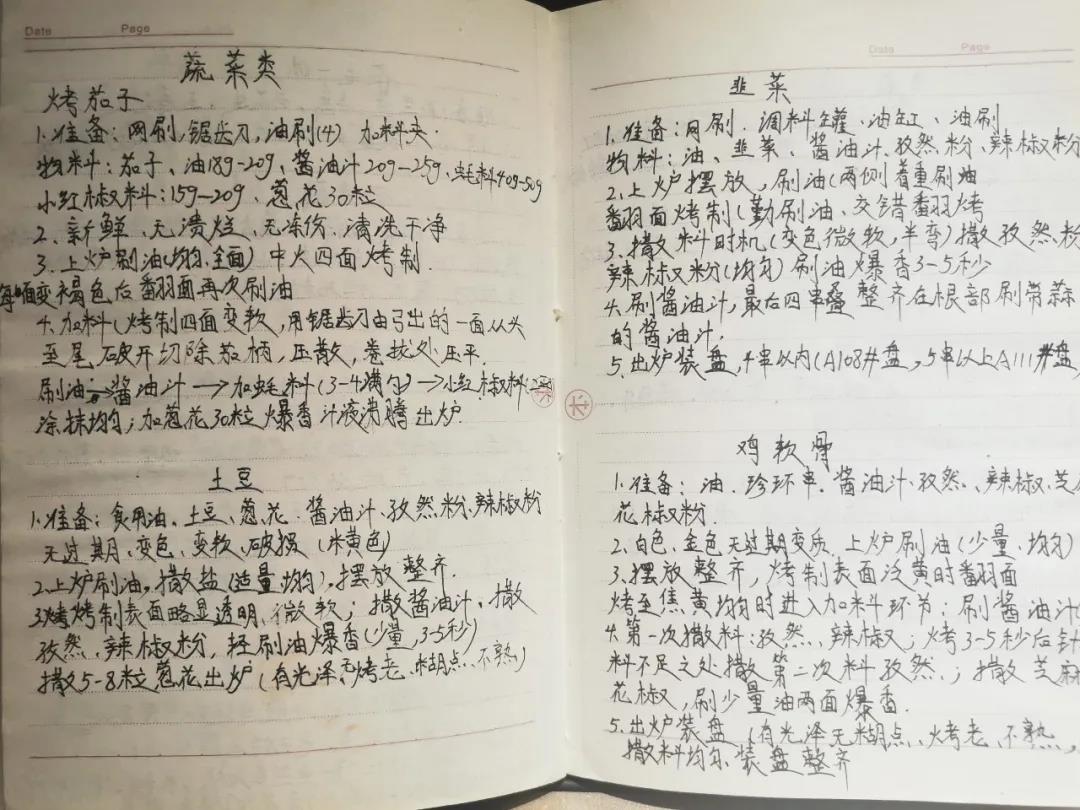 Date Page
蔬菜类
烤茄子
1.准备:网刷,锯齿刀,油刷(4) 加料夹.
物料:茄子、油18g-20g、酱油汁20g-25g、蚝料40g-50g
小红椒料:15g-20g、葱花30粒
2.新鲜、无溃烂、无冻伤、清洗干净
3.上炉刷油(均匀.全面)中火四面烤制.
每面变褐色后翻面再次刷油
4.加料(烤制四面变软,用锯齿刀由弓出的一面从头
至尾破开切除茄柄,压散,卷拢处压平.
刷油→酱油汁→加蚝料(3-4满勺)→小红椒料
涂抹均匀;加葱花30粒爆香汁液沸腾出炉.
土豆
1.准备:食用油、土豆、葱花、酱油汁、孜然粉、辣椒粉
无过期、变色、变软、破损(米黄色)
2.上炉刷油,撒盐(适量均匀),摆放整齐.
3.烤制表面略显透明、微软;撒酱油汁、撒
孜然、辣椒粉,轻刷油爆香(少量,3-5秒)
撒5-8粒葱花出炉(有光泽无烤老、糊点、不熟)
Date Page
韭菜
1.准备:网刷.调料罐、油缸、油刷
物料:油、韭菜、酱油汁、孜然粉、辣椒粉
2.上炉摆放,刷油(两侧着重刷油
翻面烤制(勤刷油、交错翻烤
3.撒料时机(变色微软,半弯)撒孜然粉
辣椒粉(均匀)刷油爆香3-5秒
4.刷酱油汁,最后四串叠整齐在根部刷带蒜
的酱油汁.
5.出炉装盘,4串以内(A108#盘,5串以上A111#盘)
鸡软骨
1.准备:油.珍环串.酱油汁、孜然、辣椒、芝
花椒粉.
2.白色、金色无过期变质.上炉刷油(少量、均匀)
3.摆放整齐,烤制表面泛黄时翻面
烤至焦黄均匀时进入加料环节:刷酱油汁
4.第一次撒料:孜然、辣椒;烤3-5秒后针
料不足之处撒第二次料孜然;撒芝麻
花椒,刷少量油两面爆香.
5.出炉装盘(有光泽无糊点、烤老、不熟,
撒料均匀、装盘整齐